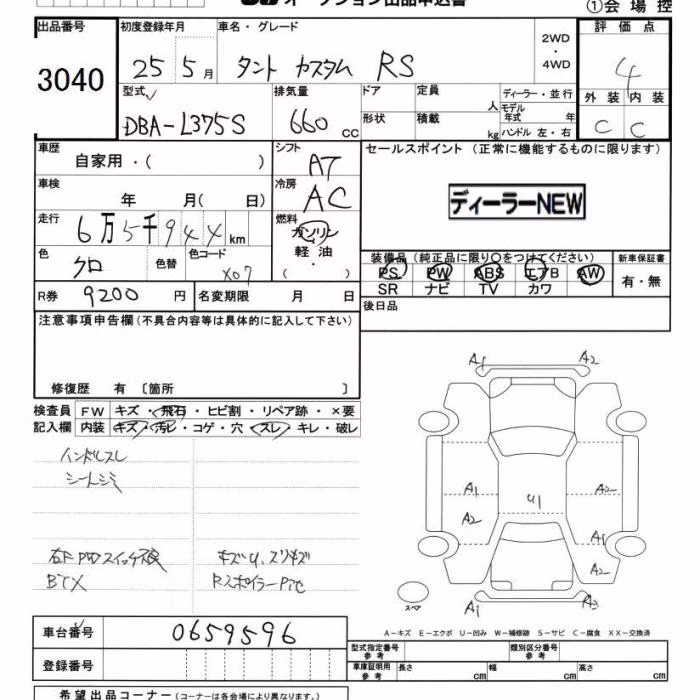 オークション出品申込書
①会場控
出品番号 初度登録年月 車名・グレード 2WD・4WD 評価点
3040 25 5月 タント カスタム RS 4
型式 排気量 ドア 定員 人 ディーラー・並行 外装 内装
DBA-L375S 660 cc 形状 積載 kg モデル年式 年 ハンドル 左・右 C C
車歴 自家用・( ) シフト AT セールスポイント (正常に機能するものに限ります)
車検 年 月( 日) 冷房 AC ディーラーNEW
走行 6万5千944km 燃料 ガソリン 軽油 ( ・ )
色 クロ 色替 色コード X07 装備品 (純正品に限り○をつけてください) 新車保証書
PS PW ABS エアB AW 有・無
R券 9200円 名変期限 月 日 SR ナビ TV カワ
注意事項申告欄(不具合内容等は具体的に記入して下さい) 後日品
修復歴 有〔箇所 〕
検査員 FW キズ・飛石・ヒビ割・リペア跡・×要
記入欄 内装 キズ・汚レ・コゲ・穴・スレ・キレ・破レ
ハンドルスレ
シートシミ
右F PWスイッチ不良 キズU、スリキズ
RスポイラーP化
A1 A2
A1 U1 A2
A2 A1
A2
スペア A1 A3
A-キズ E-エクボ U-凹み W-補修跡 S-サビ C-腐食 XX-交換済
車台番号 0659596
型式指定番号 参考 類別区分番号 参考
登録番号 車庫証明用 参考 長さ cm 幅 cm 高さ cm
希望出品コーナー (コーナーは各会場により異なります。)